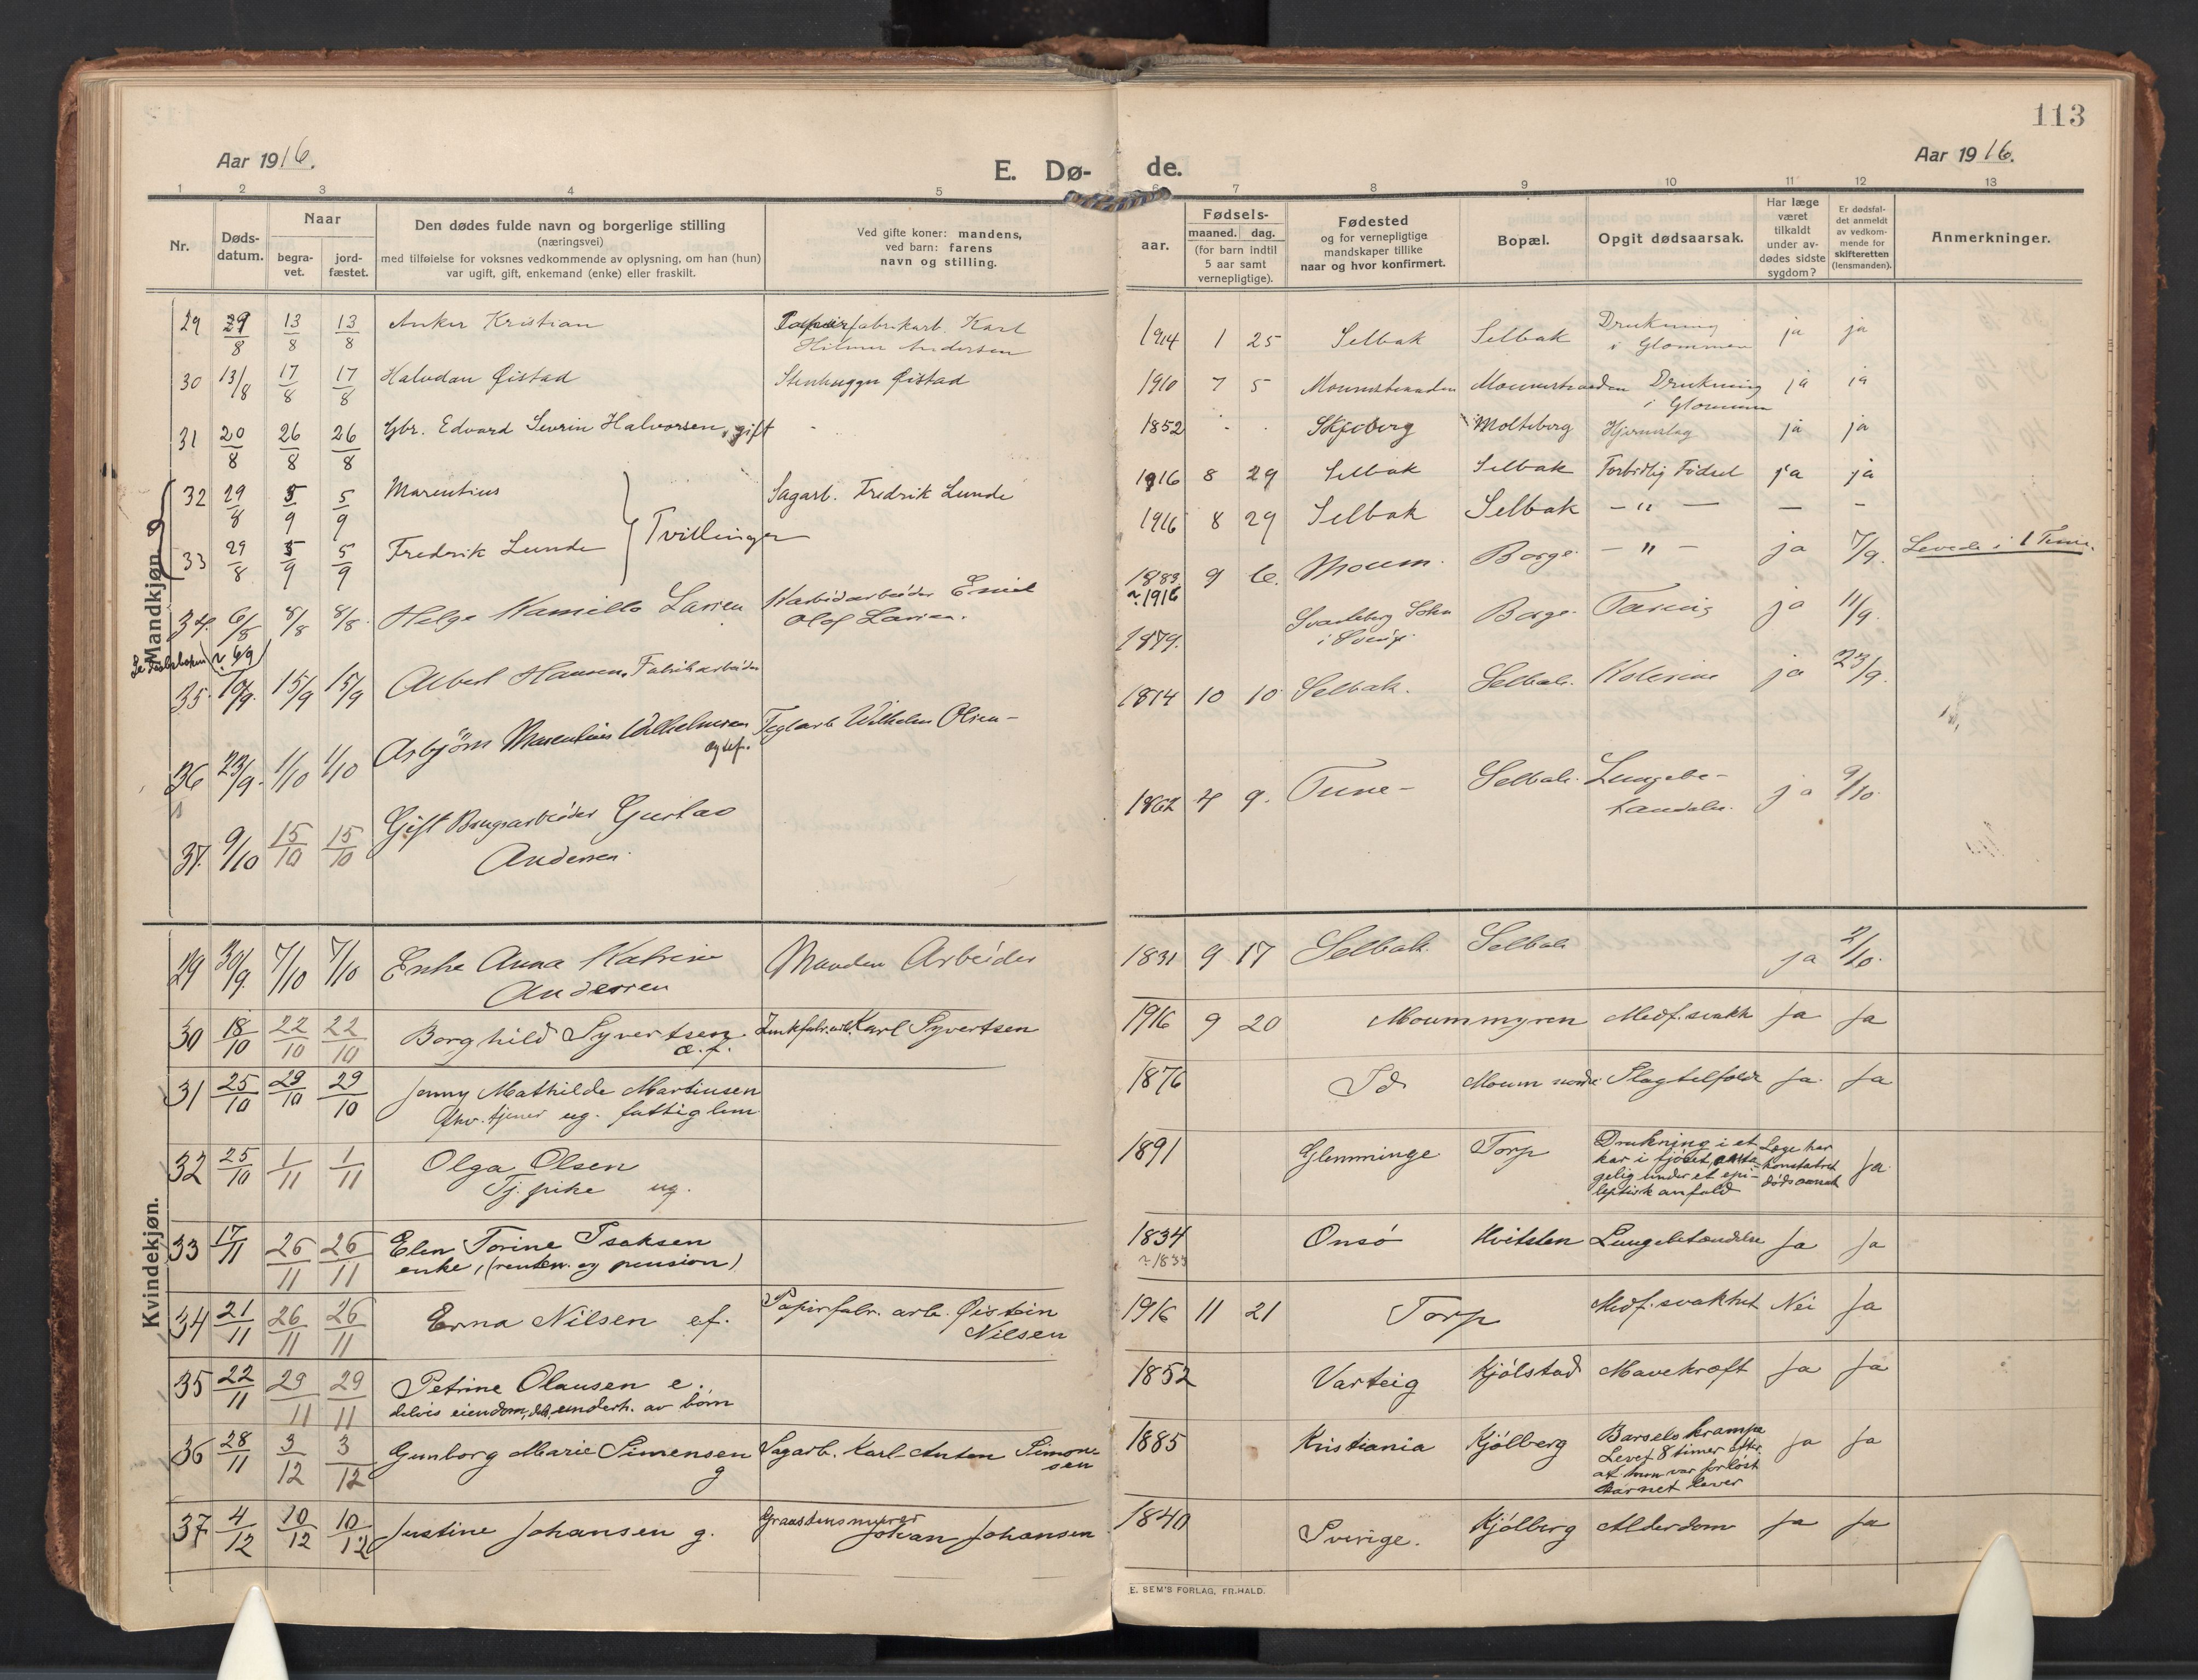 113
Aar 1916.
E. Dø-
de.
Aar 1916.
1 2 3 4 5 6 7 8 9 10 11 12 13
Nr.
Døds-
datum.
Naar
begra-
vet.
jord-
fæstet.
Den dødes fulde navn og borgerlige stilling
(næringsvei)
med tilføielse for voksnes vedkommende av oplysning, om han (hun)
var ugift, gift, enkemand (enke) eller fraskilt.
Ved gifte koner: mandens,
ved barn: farens
navn og stilling.
aar.
Fødsels-
maaned. dag.
(for barn indtil
5 aar samt
vernepligtige).
Fødested
og for vernepligtige
mandskaper tillike
naar og hvor konfirmert.
Bopæl.
Opgit dødsaarsak.
Har læge
været
tilkaldt
under av-
dødes sidste
sygdom?
Er dødsfal-
det anmeldt
av vedkom-
mende for
skifteretten
(lensmanden).
Anmerkninger.
Mandkjøn.
29 29/8 13/8 13/8 Anker Kristian Papirfabrikarb. Karl
Hilmer Andersen
1914 1 25 Selbak Selbak Drukning
i Glommen ja ja
30 13/8 17/8 17/8 Halvdan Øistad Stenhugger Øistad
1910 7 5 Moumstranden Moumstranden Drukning
i Glommen ja ja
31 20/8 26/8 26/8 Gbr. Edvard Sevrin Halvorsen, gift
1852 Skjeberg Molteberg Hjerneslag ja ja
32 29/8 5/9 5/9 Marentius Sagarb. Fredrik Lunde
1916 8 29 Selbak Selbak Fortidlig Fødsel ja ja
Tvillinger
33 29/8 5/9 5/9 Fredrik Lunde
1916 8 29 Selbak Selbak — " — — —
34. 6/8 8/8 8/8 Helge Kamillo Larsen Karbidarbeider Emil
Olof Larsen.
~ 6/9
1883 ~1916 9 6. Moum. Borge. — " — ja 7/9. Levede i 1 Time.
35. 10/9. 15/9 15/9 Albert Hansen, Fabrikarbeider
1879. Svarteborg Sokn
i Sverige. Borge. Tæring ja 11/9.
36 23/9. 1/10 1/10 Asbjørn Marentius Wilhelmsen Teglarb Wilhelm Olsen —
Ægtef.
1914 10 10 Selbak. Selbak. Kolerine ja 23/9.
37. 9/10 15/10 15/10 Gift Brugsarbeider Gustav
Andersen.
1862 4 9. Tune — Selbak. Lungebe-
tændelse. ja 9/10.
Kvindekjøn.
29 30/9. 7/10 7/10 Enke Anna Katrine
Andersen Manden Arbeider
1831 9 17 Selbak. Selbak ja 2/10.
30 18/10 22/10 22/10 Borghild Syvertsen
æ.f. Zinkfabr.arb. Karl Syvertsen
1916 9 20 Moummyren Medf. svakh ja ja
31 25/10 29/10 29/10 Jenny Mathilde Martinsen
fhv. tjener ug. fattiglem
1876 Id Moum nordre Slagtelfælde ja. ja
32 25/10 1/11 1/11 Olga Olsen
Tj. pike ug.
1891 Glemminge Torp Drukning i et
kar i fjøset, anta-
gelig under et epi-
leptisk anfald Læge har
konstatert
dødsaarsak ja.
33 17/11 26/11 26/11 Elen Torine Isaksen
enke, (renten. og pension)
1834
~1833 Onsø Hvitsten Lungebetændelse ja ja
34 21/11 26/11 26/11 Erna Nilsen ef. Papirfabr. arb. Øistein
Nilsen
1916 11 21 Torp Medf. svakhet Nei ja
35 22/11 29/11 29/11 Petrine Olausen e.
delvis eiendom, dels underh. av børn
1852 Varteig Kjølstad Mavekræft ja ja
36 28/11 3/12 3/12 Gunborg Marie Simensen
g Sagarb. Karl-Anton Simon-
sen
1885 Kristiania Kjølberg Barselskrampe
Levet 8 timer efter
at hun var forløst
barnet lever ja ja
37 4/12 10/12 10/12 Justine Johansen g. Graastensmurer
Johan Johansen
1840 Sverige. Kjølberg Alderdom ja ja
E. SEM'S FORLAG, FR.HALD.